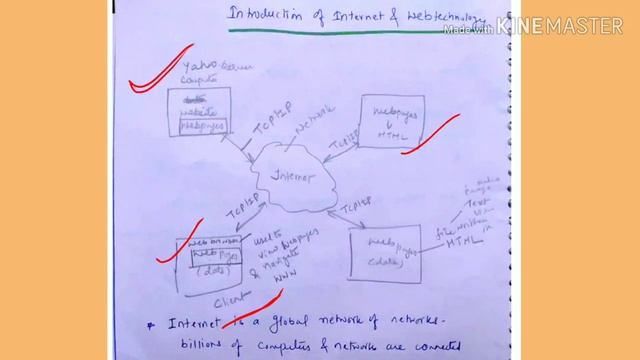 Introduction of Internet & Web technology
Made with KINEMASTER
Yahoo server
Computer
website
webpages
TCP/IP
Network
webpages
HTML
TCP/IP
Internet
TCP/IP
TCP/IP
web browser
web pages
(data)
client
used to
view webpages
& navigate
WWW
web
pages
(data)
Text
file written
in
HTML
* Internet is a global network of networks-
billions of computers & networks are connected